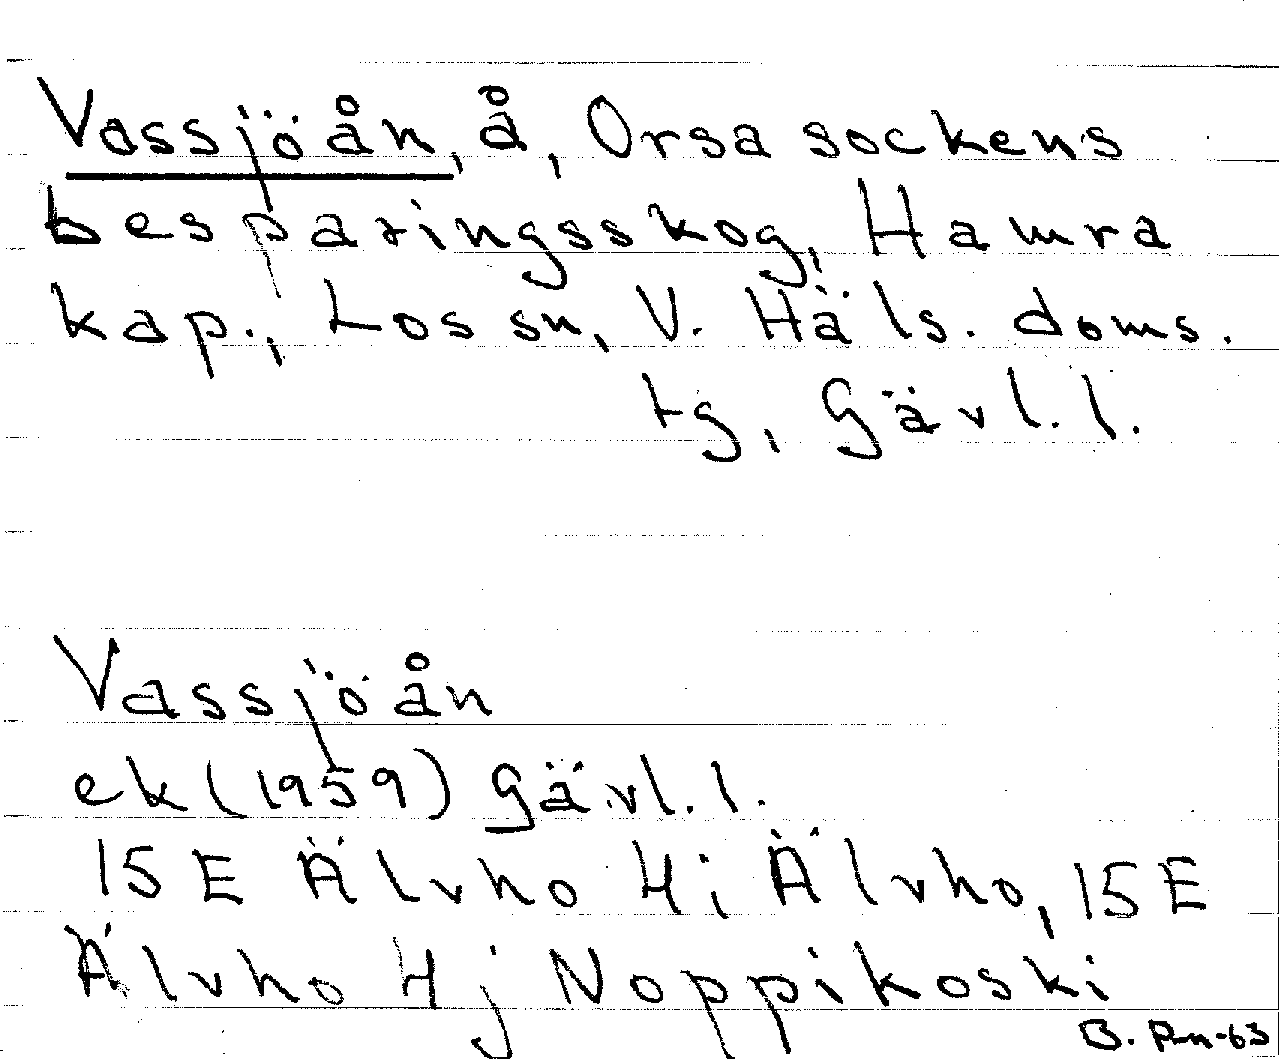 Vassjöån, å, Orsa sockens
besparingsskog, Hamra
kap., Los sn, V. Häls. doms.
tg, Gävl. l.
Vassjöån
ek (1959) Gävl. l.
15 E Älvho 4i Älvho, 15 E
Älvho 4j Noppikoski
B. Pn-63